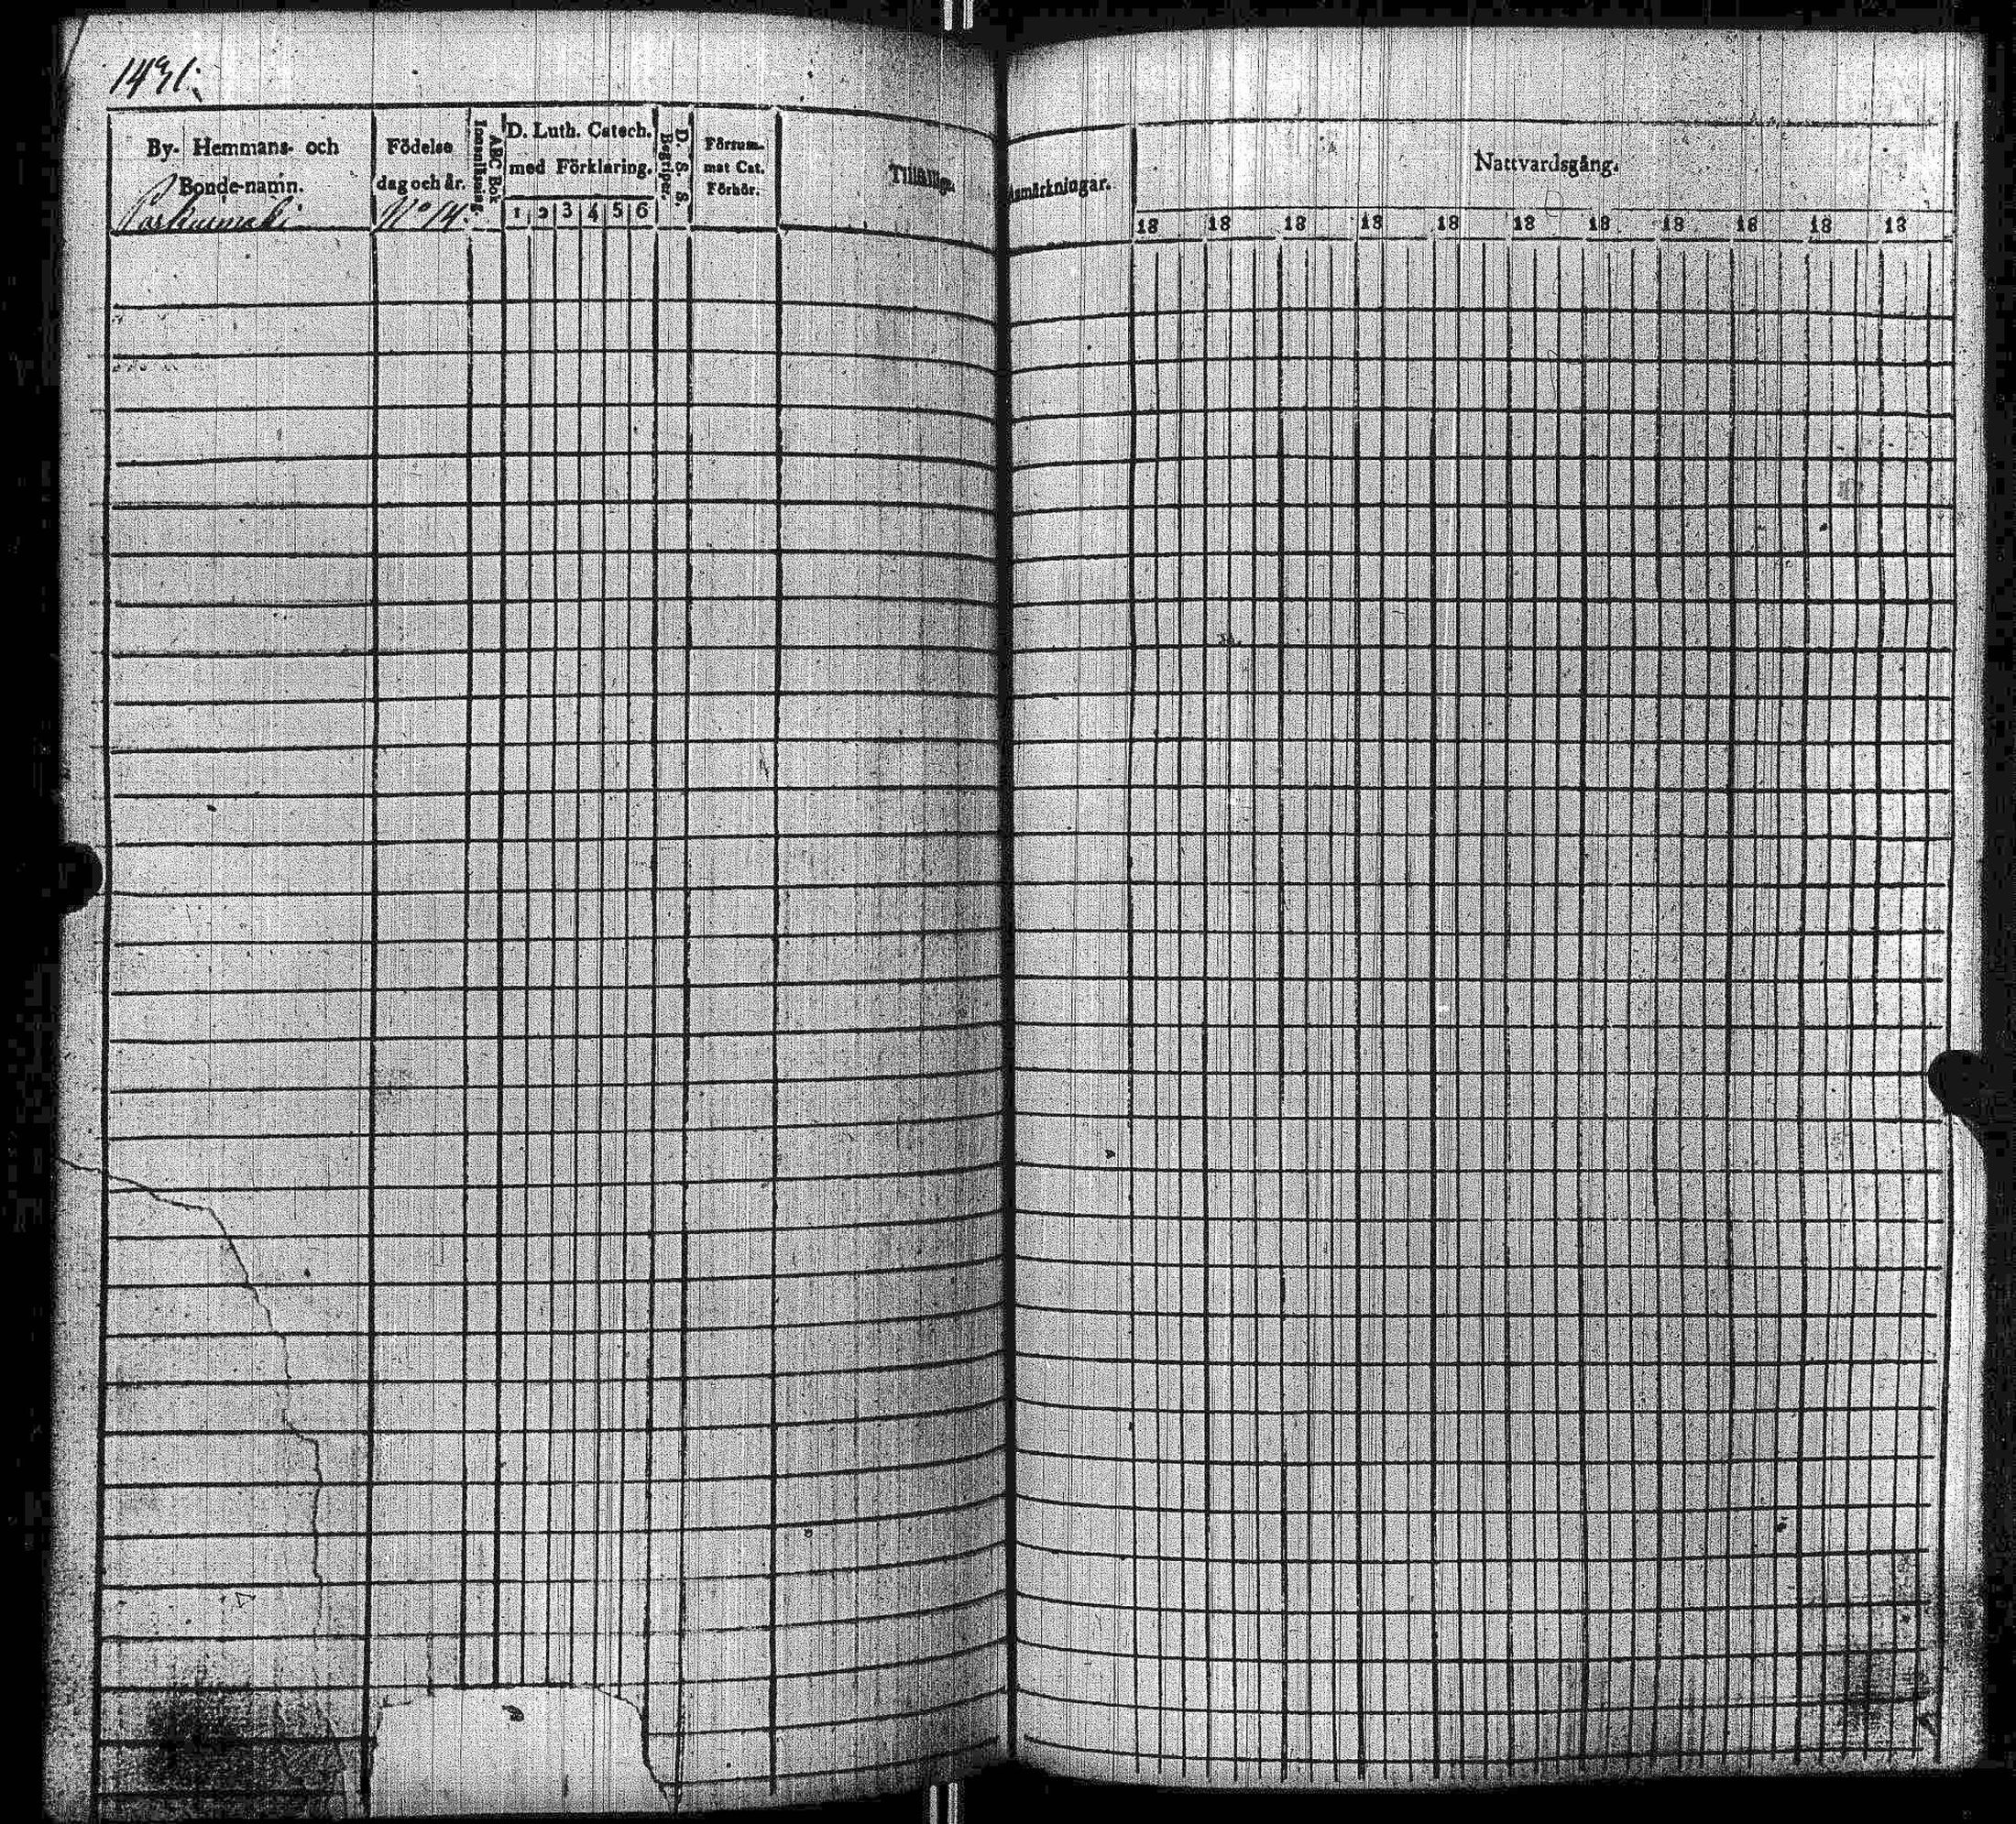 By- Hemmans- och
Bonde-namn.
Födelse
dag och år.
No 14.
Innanläsning.
ABC Bok
D. Luth. Catech.
med Förklaring.
1 2 3 4 5 6
Begriper.
D. S. S.
Försum-
mat Cat.
Förhör.
Nattvardsgång.
18 18 18 18 18 18 18 18 18 18 18